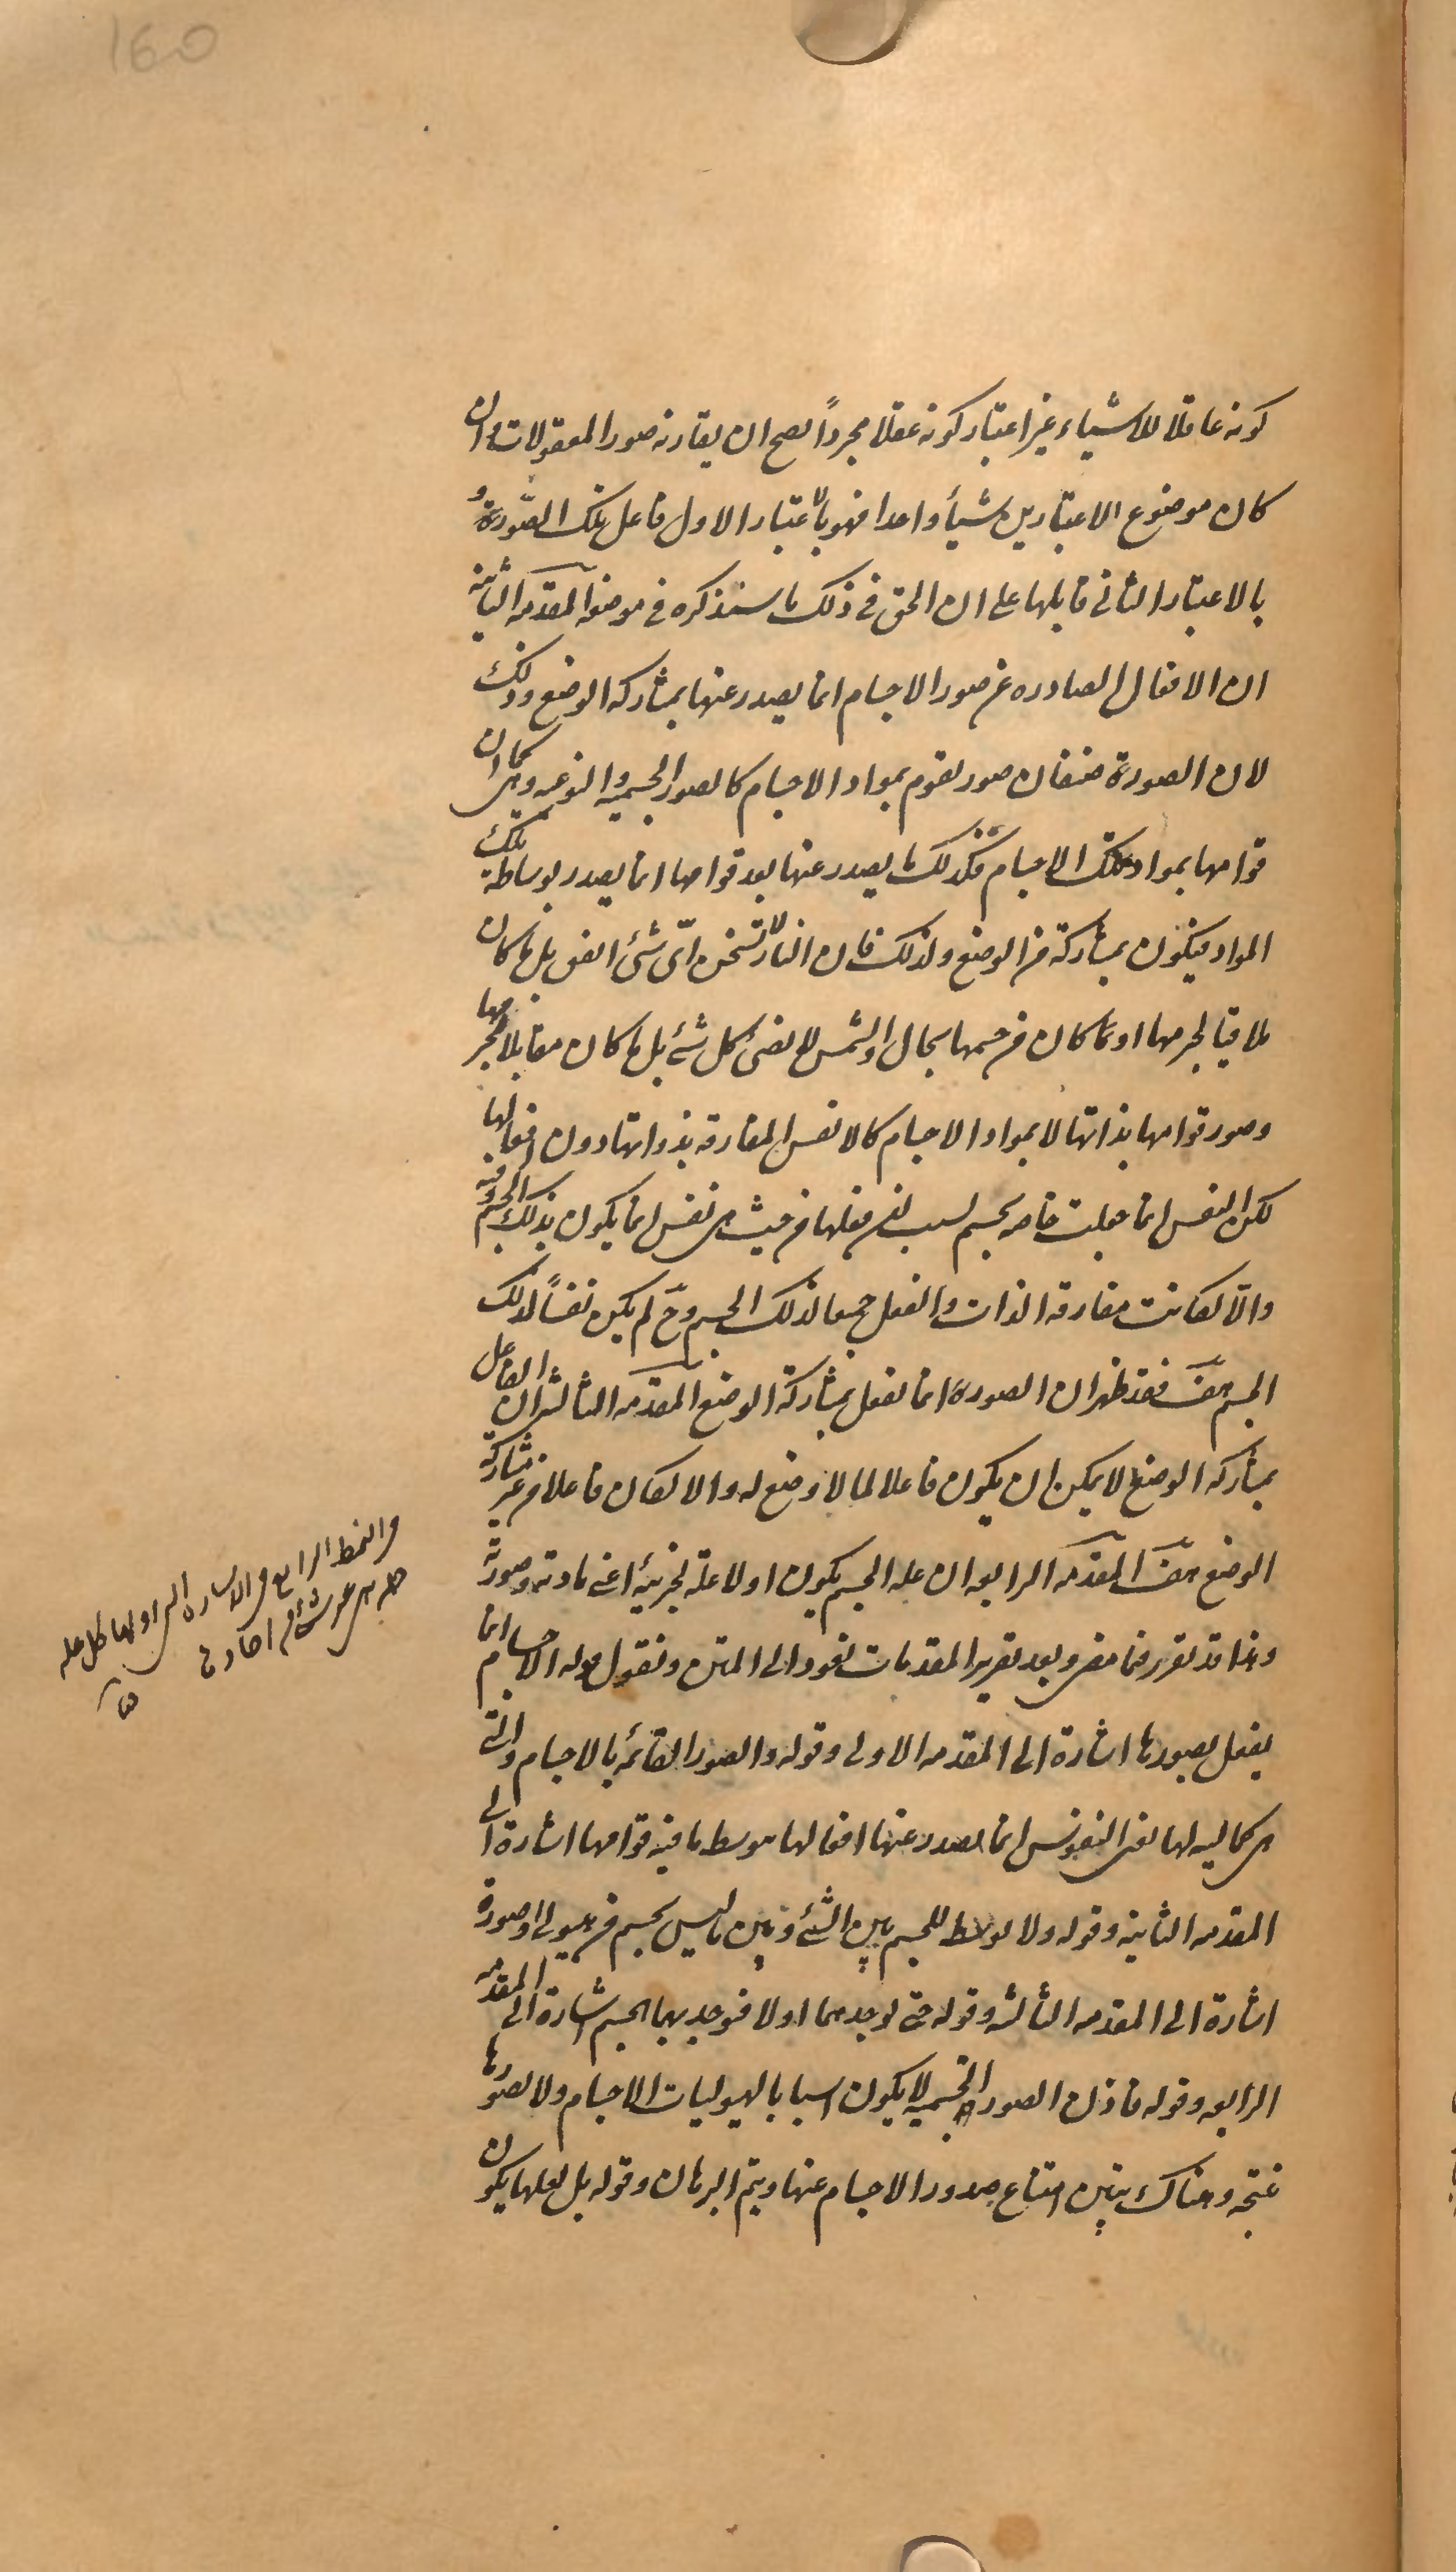 160
كونه عاقلا للاشياء غير اعتبار كونه عقلا مجرداً يصح ان يقارنه صور المعقولات وان
كان موضوع الاعتبارين شيأ واحدا فهو بالاعتبار الاول فاعل تلك الصّورة و
بالاعتبار الثانى قابلها على ان الحق فى ذلك ما سنذكره فى موضعه المقدمه الثانية
ان الافعال الصادره عن صور الاجسام انما يصدر عنها بمشاركه الوضع وذلك
لان الصورة صنفان صور تقوم بمواد الاجسام كالصور الجسميه والنوعيه وهى كما ان
قوامها بمواد تلك الاجسام فكذلك ما يصدر عنها بعد قوامها انما يصدر بوساطة تلك
المواد فيكون بمشاركة من الوضع ولذلك فان النار لا تسخن اىّ شئ اتفق بل ما كان
ملاقيا لجرمها او ما كان من جسمها بحال والشمس لا تضئ كل شئ بل ما كان مقابلا لجرمها
وصور قوامها بذاتها لا بمواد الاجسام كالانفس المفارقه بذواتها دون افعالها
لكن النفس انما جعلت خاصه بجسم لسبب ان فعلها من حيث هى نفس انما يكون بذلك الجسم وفيه
والّا لكانت مفارقه الذات والفعل جميعا لذلك الجسم وحّ لم يكن نفساً لذلك
الجسم هف فقد ظهر ان الصورة انما تفعل بمشاركة الوضع المقدمه الثالثه ان الفاعل
بمشاركه الوضع لا يمكن ان يكون فاعلا لما لا وضع له والا لكان فاعلا من غير مشاركة
الوضع هف المقدمه الرابعه ان عله الجسم يكون اولا علة لجزئيه اعنى مادته وصورته
وهذا قد تقرر فيما مضى وبعد تقرير المقدمات نعود الى المتن ونقول قوله الاجسام انما
يفعل بصورها اشارة الى المقدمه الاولى وقوله والصور القائمه بالاجسام والتى
هى كماليه لها يعنى النفوس انما يصدر عنها افعالها بتوسط ما فيه قوامها اشارة الى
المقدمه الثانيه وقوله ولا توسط للجسم بين الشئ وبين ما ليس بجسم من هيولى او صورة
اشارة الى المقدمه الثالثه وقوله حتى يوجدهما اولا فيوجد بهما الجسم اشارة الى المقدمه
الرابعه وقوله فاذن الصور الجسميه لا يكون اسبابا لهيوليات الاجسام ولا لصورها
نتيجه وهناك يتبين امتناع صدور الاجسام عنها ويتم البرهان وقوله بل لعلها يكون
فى النمط الرابع فى الاشاره التى اولها كل عله
جمله هى غير شئ من احادها